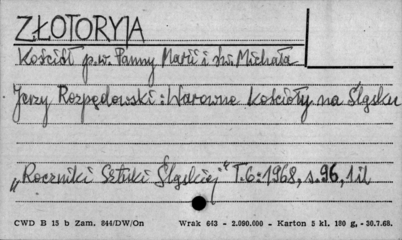 ZŁOTORYJA
Kościół p.w. Panny Marii i św. Michała
Jerzy Rozpędowski: Warowne kościoły na Śląsku
„Roczniki Sztuki Śląskiej" T.6:1968, s.96, 1 il
CWD B 15 b Zam. 844/DW/On Wrak 643 - 2.080.000 - Karton 5 kl. 180 g, -30.7.68.